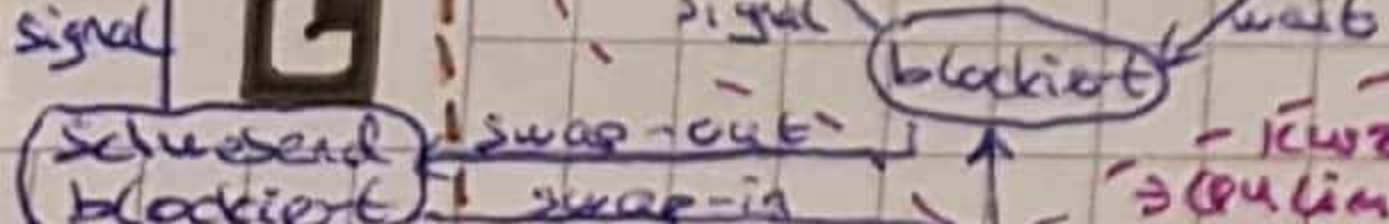 signal
signal
wait
blockiert
schwebend
blockiert
swap-out
swap-in